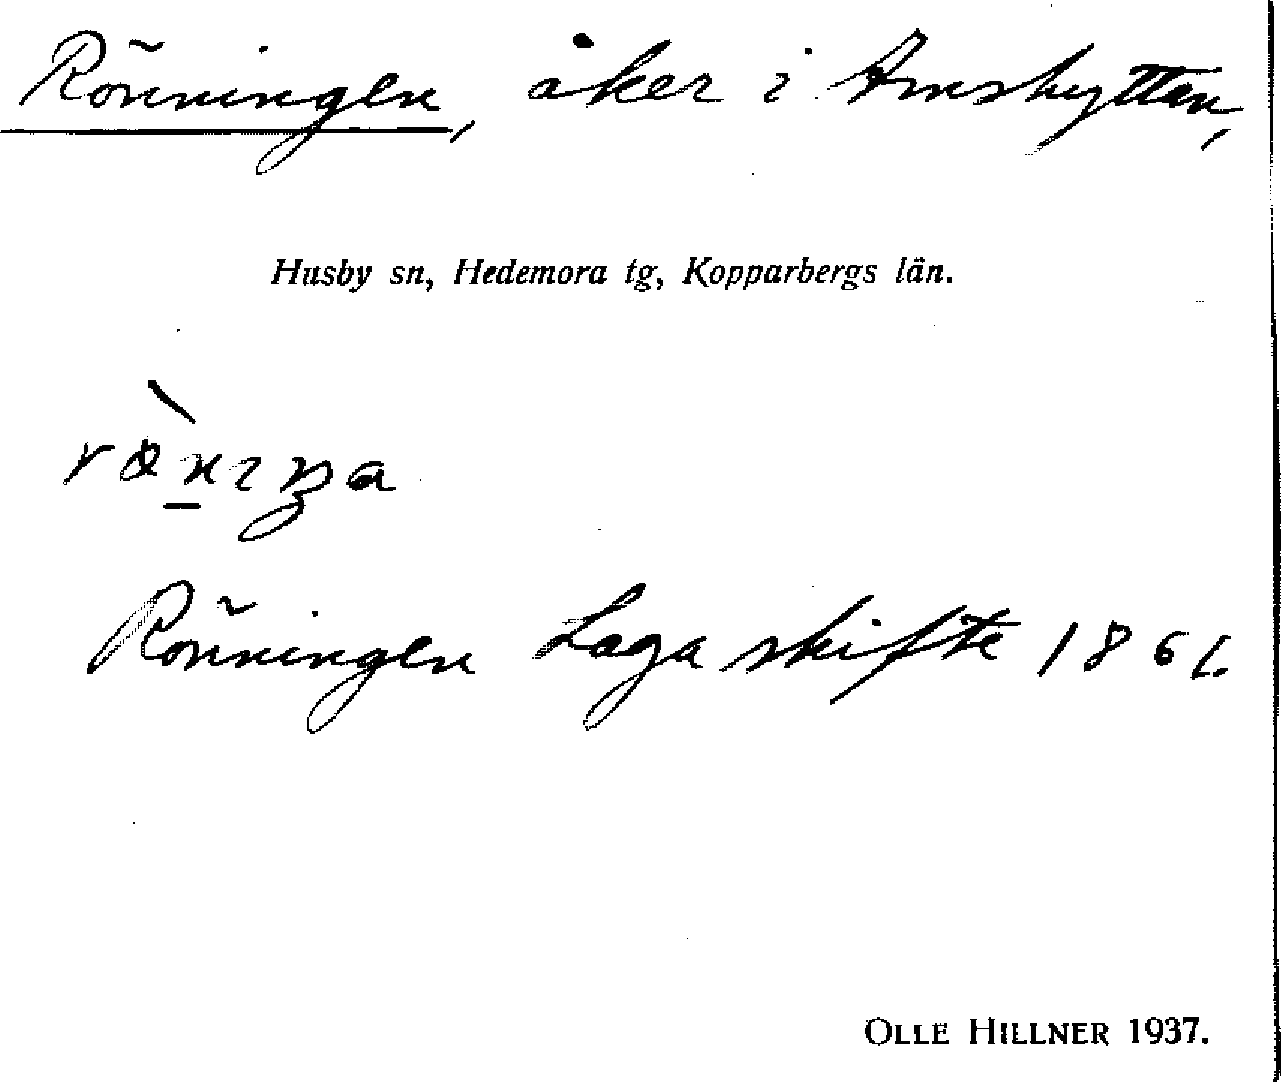 Rönningen, åker i Amshyttan,
Husby sn, Hedemora tg, Kopparbergs län.
Rönningen Laga skifte 1861.
OLLE HILLNER 1937.